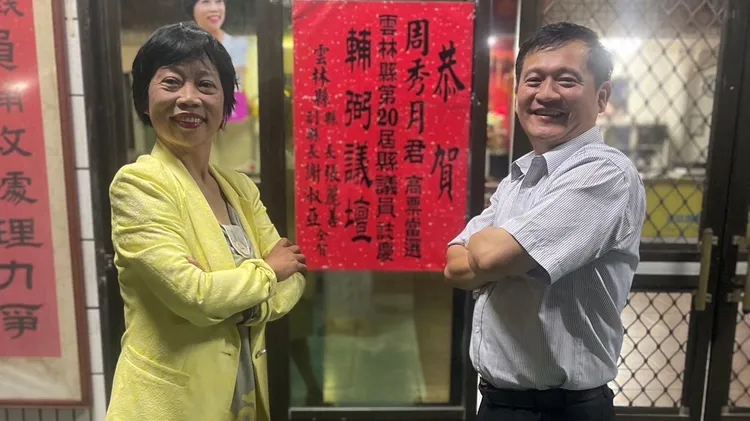 恭賀
周秀月君 高票當選
雲林縣第20屆縣議員誌慶
輔弼議壇
雲林縣 縣長張麗善
副縣長謝淑亞 仝賀
員
政處理力爭